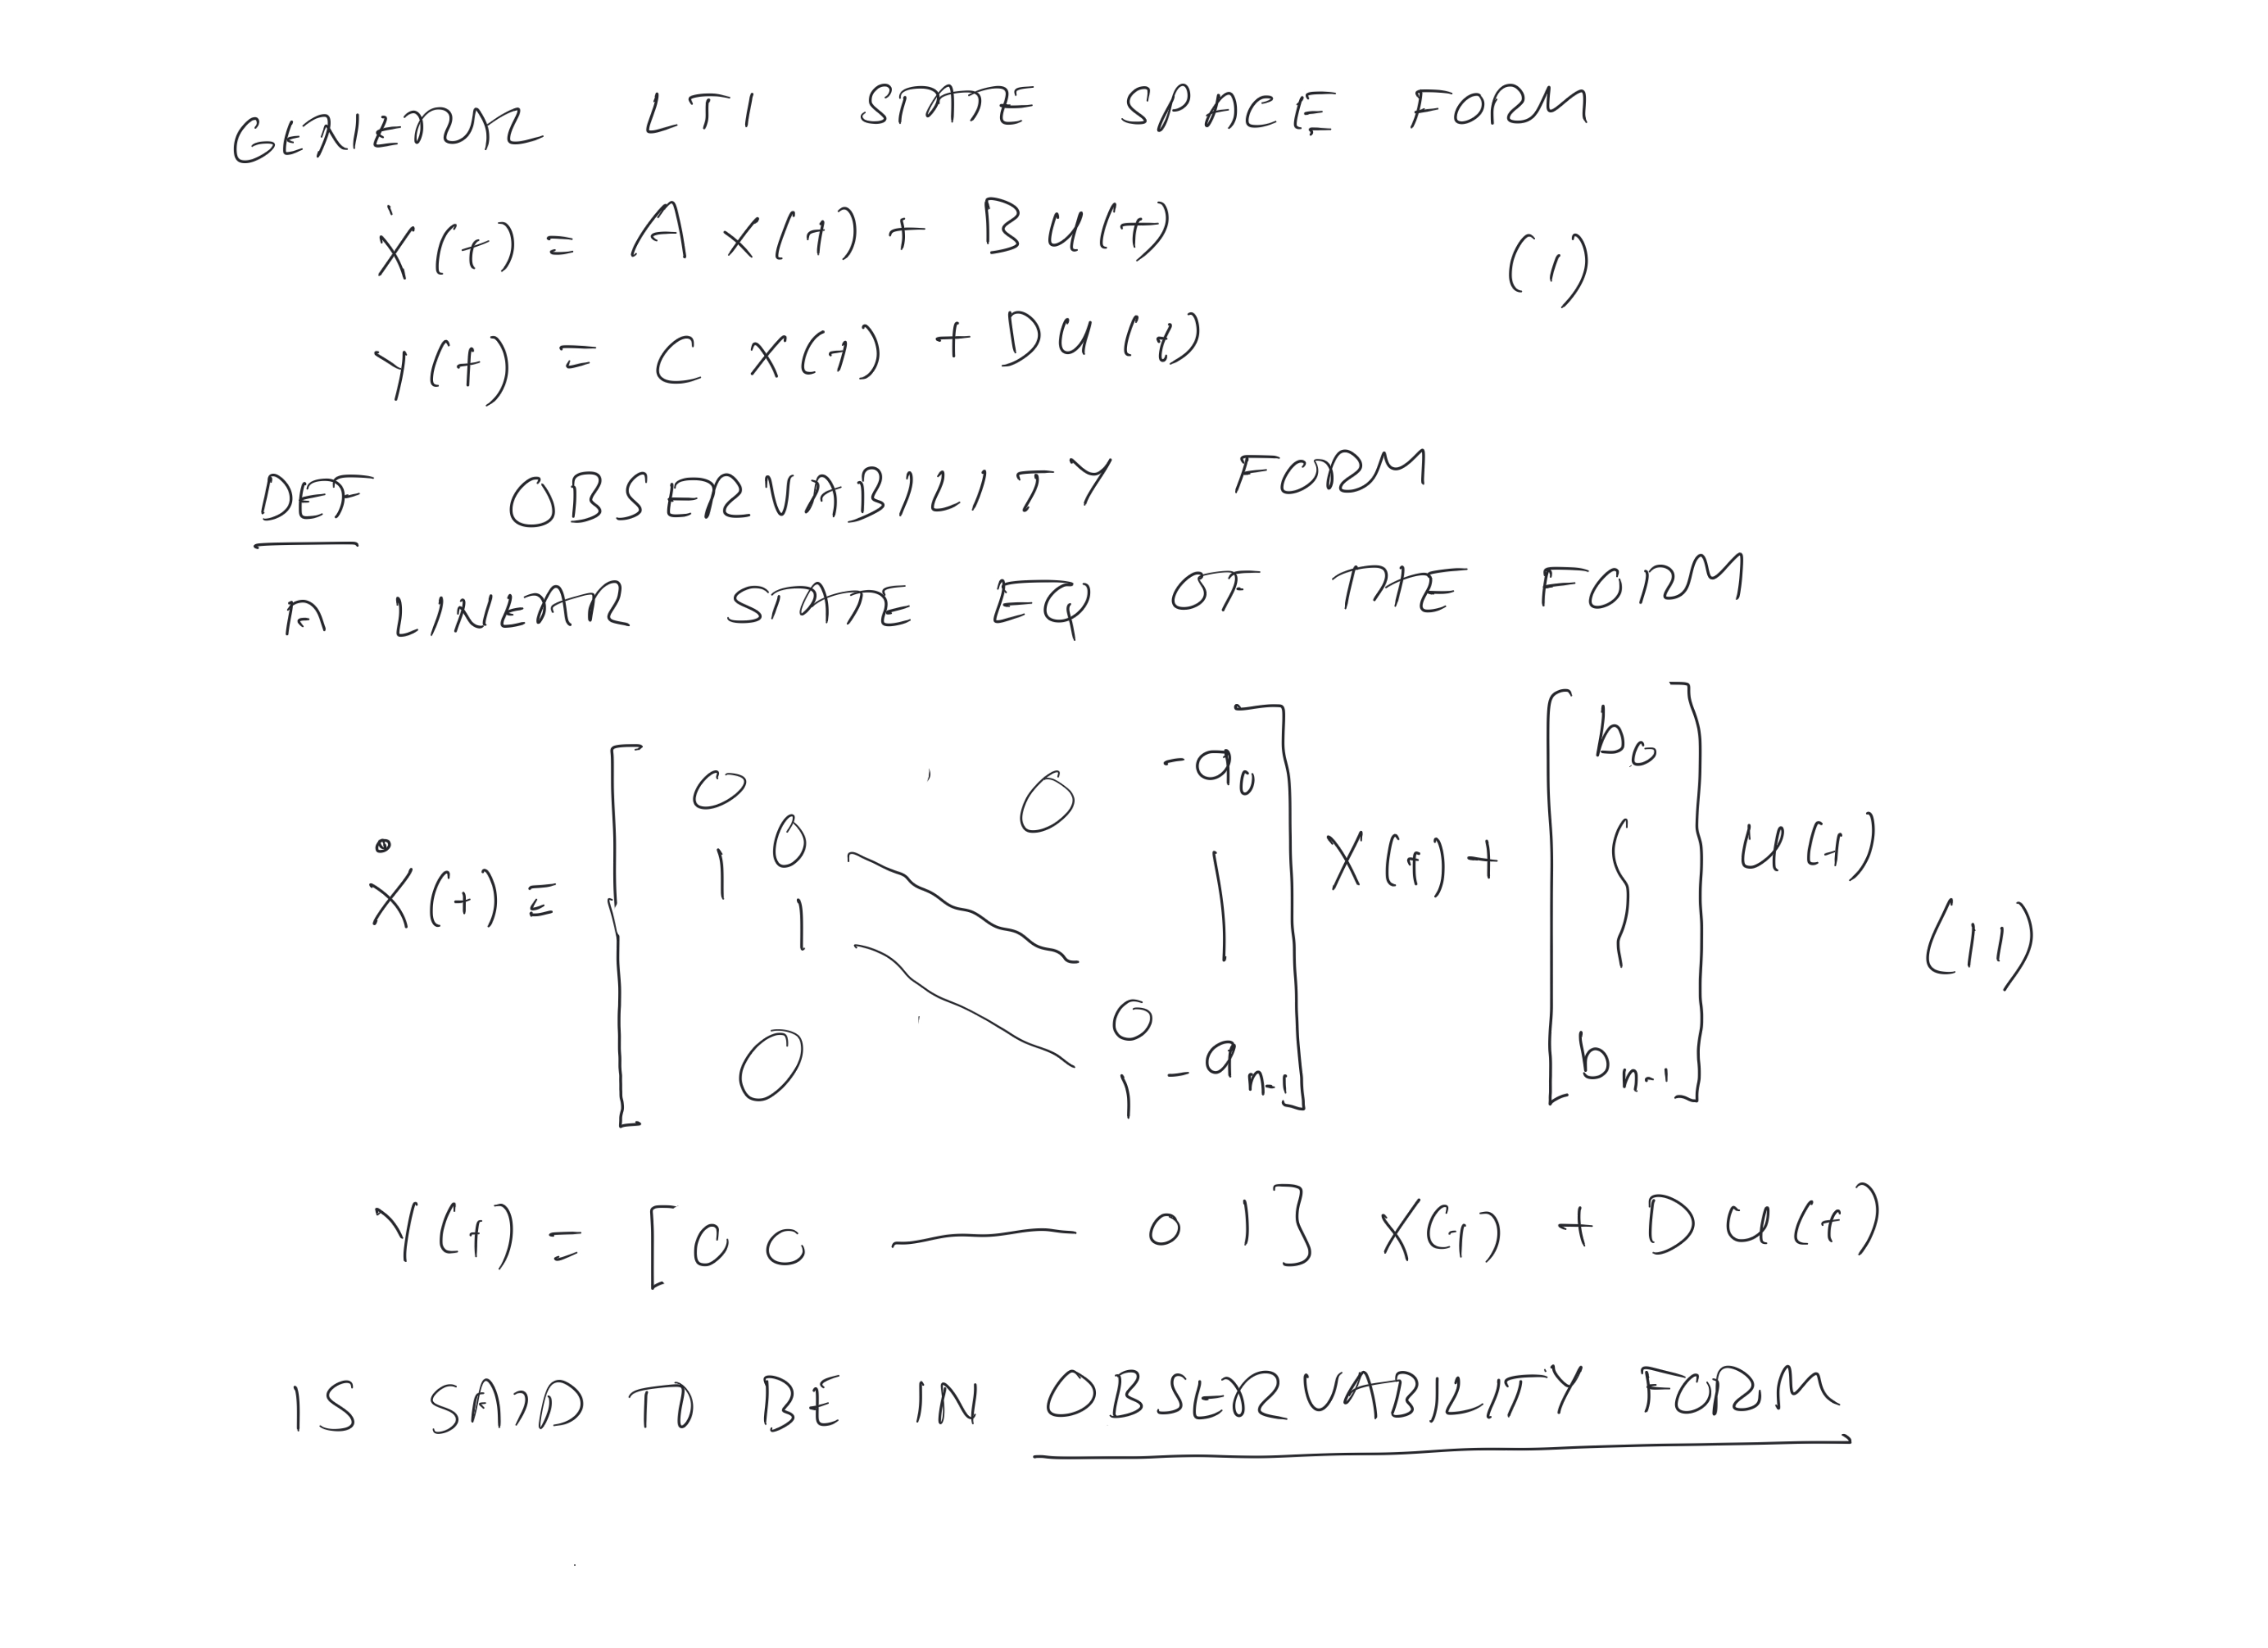 GENERAL LTI STATE SPACE FORM
Ẋ(t) = A X(t) + B U(t) (1)
Y(t) = C X(t) + D U(t)
DEF OBSERVABILITY FORM
A LINEAR STATE EQ OF THE FORM
Ẋ(t) = [ 0 0 -a₀ ; 1 0 | ; 1 ; 0 0 -aₙ₋₁ ; 1 ] X(t) + [ b₀ ; bₙ₋₁ ] U(t) (11)
Y(t) = [0 0 — 0 1] X(t) + D U(t)
IS SAID TO BE IN OBSERVABILITY FORM